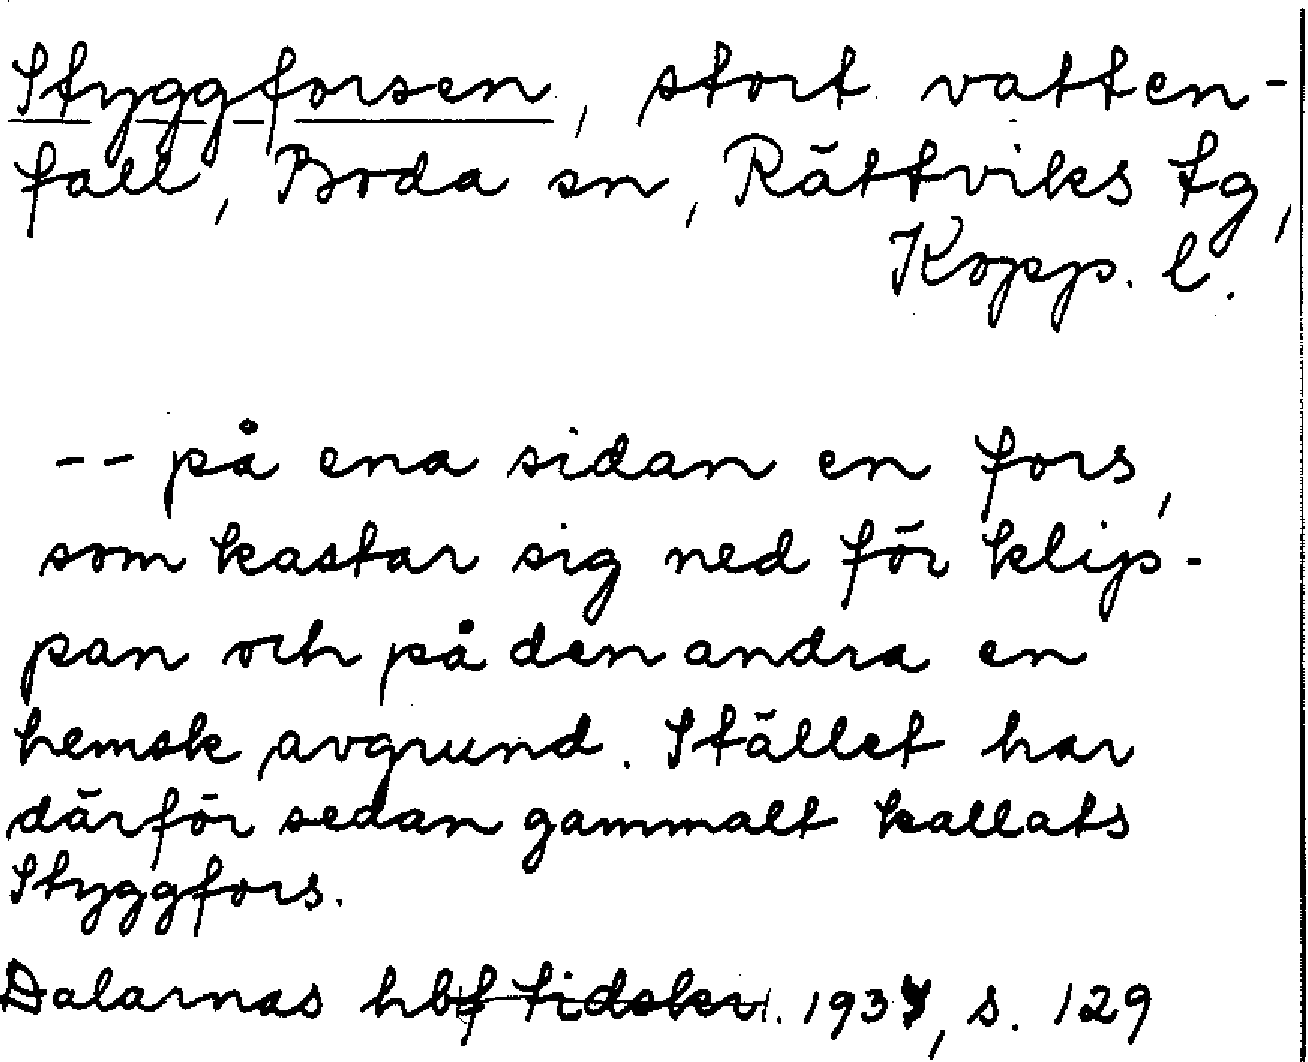 Styggforsen, stort vatten-
fall, Boda sn, Rättviks tg,
Kopp. l.
-- på ena sidan en fors,
som kastar sig ned för klip-
pan och på den andra en
hemsk avgrund. Stället har
därför sedan gammalt kallats
Styggfors.
Dalarnas hbf tidskr. , s. 129